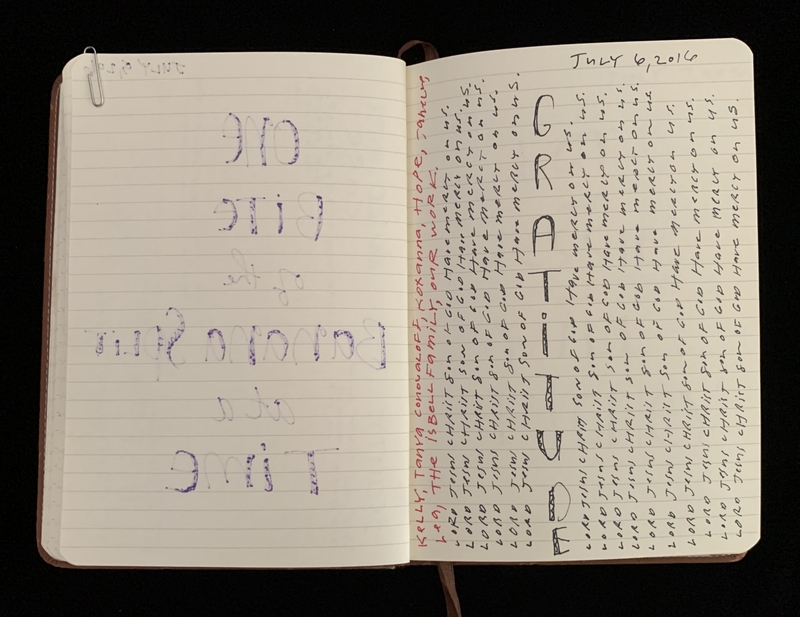 One
Bite
of the
Banana Split
at a
Time
JULY 6, 2016
Kelly, Tanya Conovaloff, Roxanna, Hope,
Lea, The Isbell Family, our work.
LORD Jesus CHRIST Son of GOD Have mercy on us.
LORD Jesus CHRIST Son of GOD Have mercy on us.
LORD Jesus CHRIST Son of GOD Have mercy on us.
LORD Jesus CHRIST Son of GOD Have mercy on us.
LORD Jesus CHRIST Son of GOD Have mercy on us.
LORD Jesus CHRIST Son of GOD Have mercy on us.
GRATITUDE
LORD Jesus CHRIST Son of GOD Have mercy on us.
LORD Jesus CHRIST Son of GOD Have mercy on us.
LORD Jesus CHRIST Son of GOD Have mercy on us.
LORD Jesus CHRIST Son of GOD Have mercy on us.
LORD Jesus CHRIST Son of GOD Have mercy on us
LORD Jesus CHRIST Son of GOD Have mercy on us.
LORD Jesus CHRIST Son of GOD Have mercy on us.
LORD Jesus CHRIST Son of GOD Have mercy on us.
LORD Jesus CHRIST Son of GOD Have mercy on us.
LORD Jesus CHRIST Son of GOD Have mercy on us.